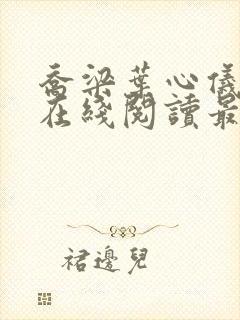 喬梁葉心儀
在綫閱讀最
裙邊兒